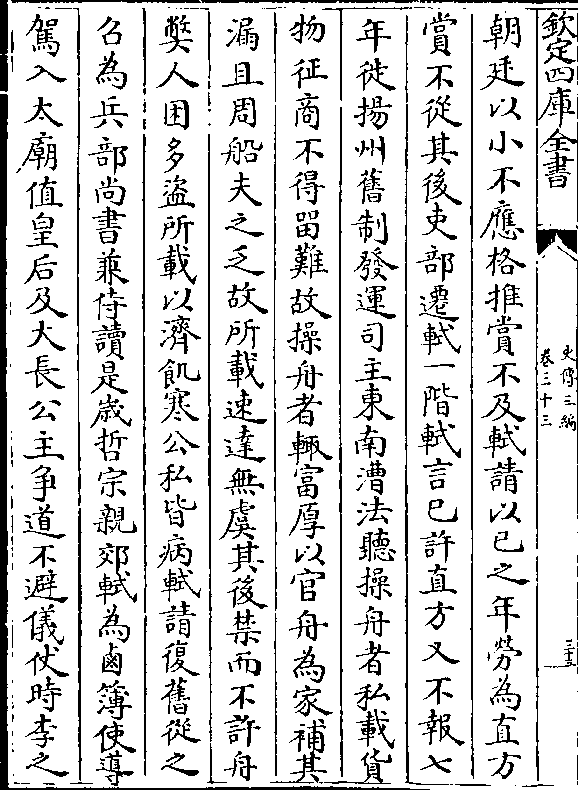 欽定四庫全書
史傳三編
卷三十三
三十五
朝廷以小不應格推賞不及軾請以已之年勞為直方
賞不從其後吏部遷軾一階軾言已許直方又不報七
年徙揚州舊制發運司主東南漕法聽操舟者私載貨
物征商不得留難故操舟者輒富厚以官舟為家補其
漏且周船夫之乏故所載速達無虞其後禁而不許舟
弊人困多盜所載以濟飢寒公私皆病軾請復舊從之
召為兵部尚書兼侍讀是歲哲宗親郊軾為鹵簿使導
駕入太廟值皇后及大長公主爭道不避儀仗時李之